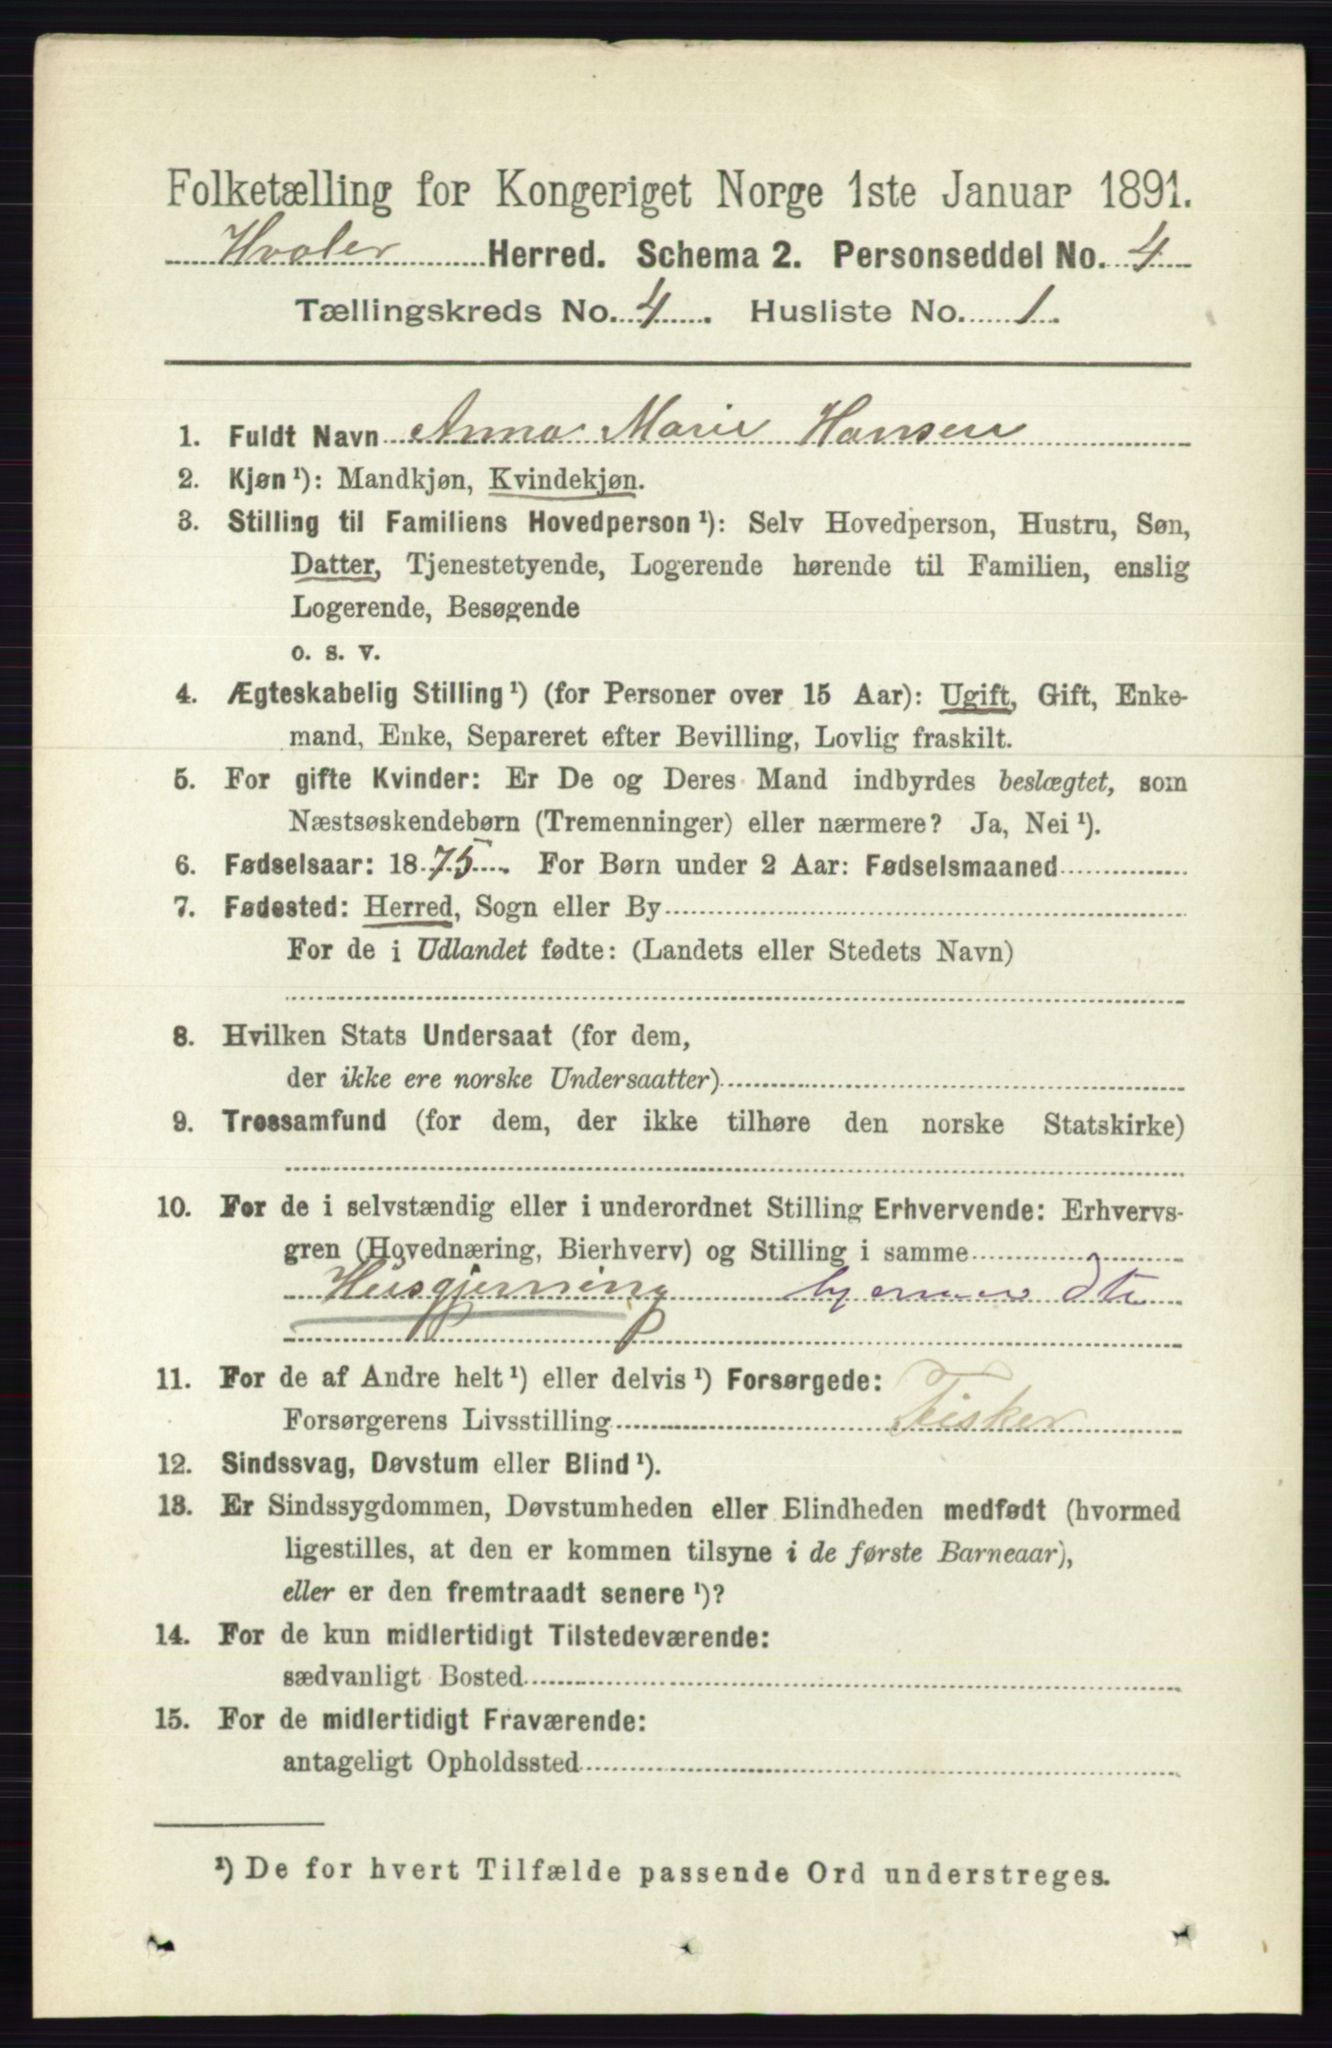 Folketælling for Kongeriget Norge 1ste Januar 1891.
Hvaler Herred. Schema 2. Personseddel No. 4
Tællingskreds No. 4. Husliste No. 1.
1. Fuldt Navn Anna Marie Hansen
2. Kjøn ¹): Mandkjøn, Kvindekjøn.
3. Stilling til Familiens Hovedperson ¹): Selv Hovedperson, Hustru, Søn,
Datter, Tjenestetyende, Logerende hørende til Familien, enslig
Logerende, Besøgende
o. s. v.
4. Ægteskabelig Stilling ¹) (for Personer over 15 Aar): Ugift, Gift, Enke-
mand, Enke, Separeret efter Bevilling, Lovlig fraskilt.
5. For gifte Kvinder: Er De og Deres Mand indbyrdes beslægtet, som
Næstsøskendebørn (Tremenninger) eller nærmere? Ja, Nei ¹).
6. Fødselsaar: 1875. For Børn under 2 Aar: Fødselsmaaned
7. Fødested: Herred, Sogn eller By
For de i Udlandet fødte: (Landets eller Stedets Navn)
8. Hvilken Stats Undersaat (for dem,
der ikke ere norske Undersaatter)
9. Trossamfund (for dem, der ikke tilhøre den norske Statskirke)
10. For de i selvstændig eller i underordnet Stilling Erhvervende: Erhvervs-
gren (Hovednæring, Bierhverv) og Stilling i samme
Husgjerning hjemme
11. For de af Andre helt ¹) eller delvis ¹) Forsørgede:
Forsørgerens Livsstilling Fisker
12. Sindssvag, Døvstum eller Blind ¹).
13. Er Sindssygdommen, Døvstumheden eller Blindheden medfødt (hvormed
ligestilles, at den er kommen tilsyne i de første Barneaar),
eller er den fremtraadt senere ¹)?
14. For de kun midlertidigt Tilstedeværende:
sædvanligt Bosted
15. For de midlertidigt Fraværende:
antageligt Opholdssted
¹) De for hvert Tilfælde passende Ord understreges.